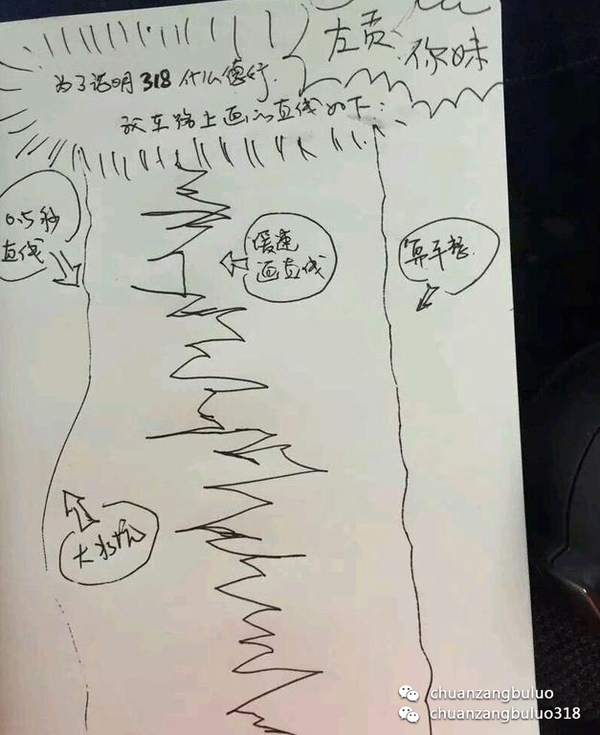 左贡
你妹
为了说明318什么德行
我在路上画的直线如下:
0.5秒
直线
缓速
画直线
算平整
大水坑
chuanzangbuluo
chuanzangbuluo318